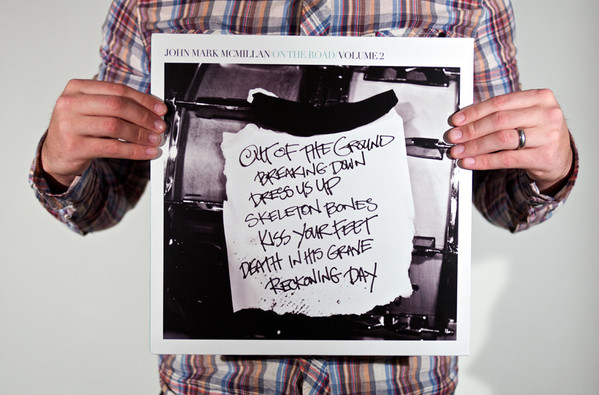 JOHN MARK MCMILLAN/ON THE ROAD/VOLUME 2
OUT OF THE GROUND
BREAKING DOWN
DRESS US UP
SKELETON BONES
KISS YOUR FEET
DEATH IN HIS GRAVE
RECKONING DAY